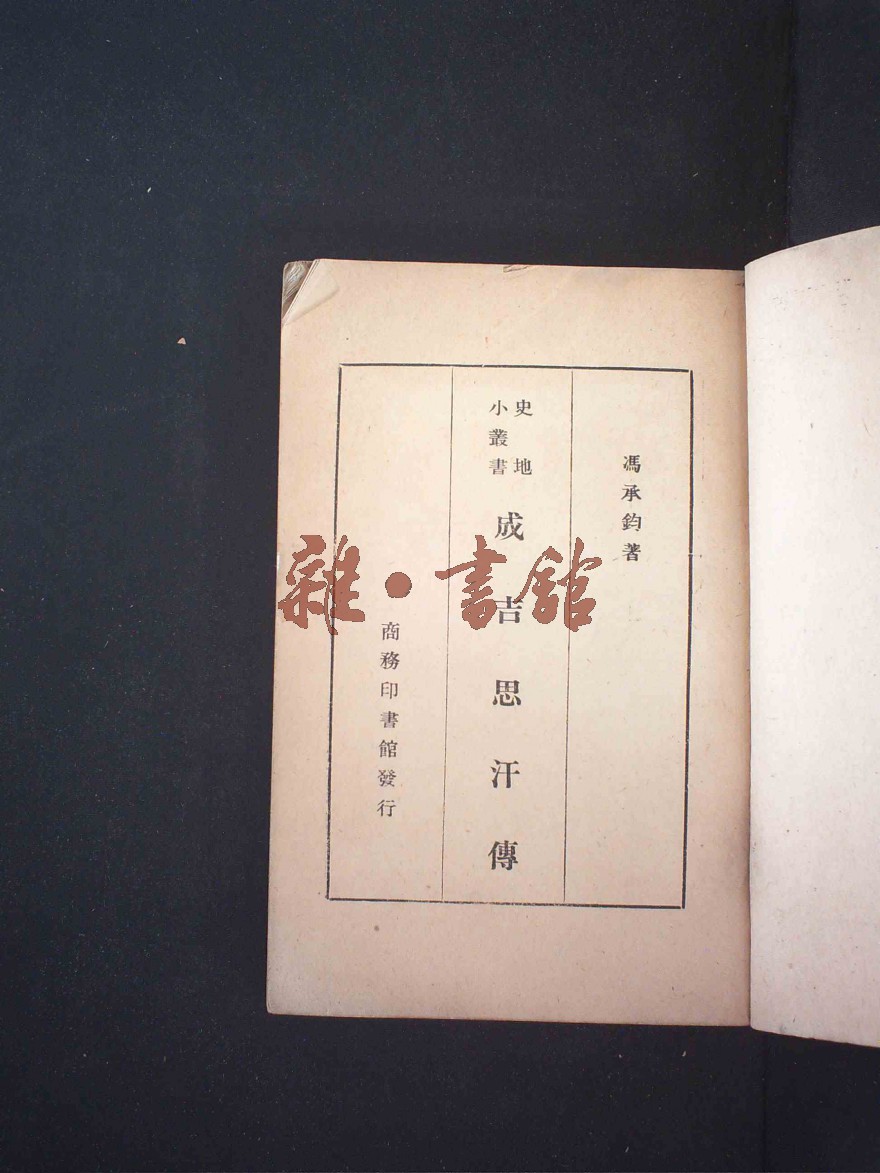 馮承鈞著
史地
小叢書
成吉思汗傳
商務印書館發行
雜·書館